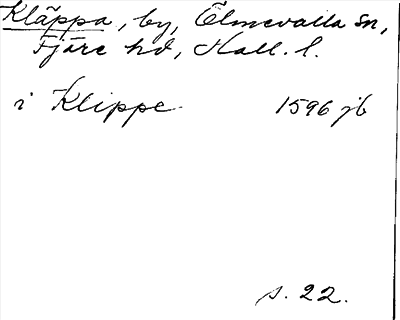 Kläppa, by, Ölmevalla sn,
Fjäre hd, Hall. l.
i Klippe 1596 jb
s. 22.